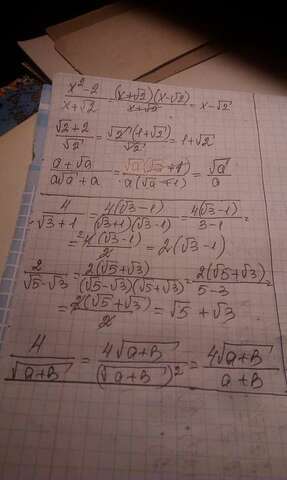 (x²-2)/(x+√2) = ((x+√2)(x-√2))/(x+√2) = x-√2
(√2+2)/√2 = (√2(1+√2))/√2 = 1+√2
(a+√a)/(a√a+a) = (√a(√a+1))/(a(√a+1)) = √a/a
4/(√3+1) = (4(√3-1))/((√3+1)(√3-1)) = (4(√3-1))/(3-1) =
= (4(√3-1))/2 = 2(√3-1)
2/(√5-√3) = (2(√5+√3))/((√5-√3)(√5+√3)) = (2(√5+√3))/(5-3) =
= (2(√5+√3))/2 = √5+√3
4/√(a+b) = (4√(a+b))/(√(a+b))² = (4√(a+b))/(a+b)